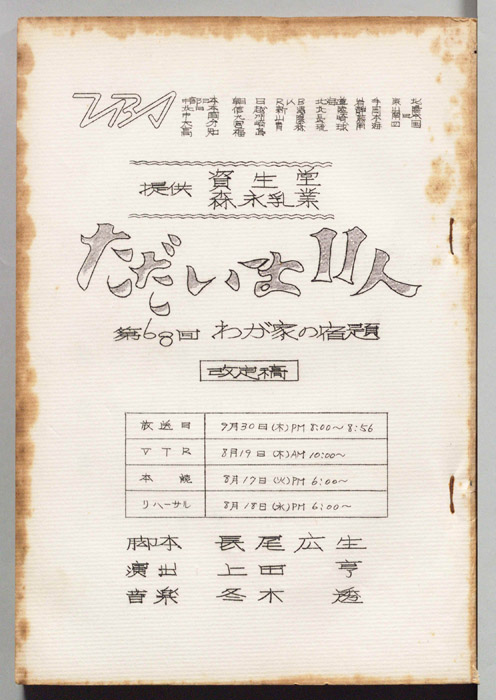 TBS
提供 資生堂
森永乳業
ただいま11人
第68回 わが家の宿題
改定稿
放送日 9月30日(木)PM 8:00〜8:56
VTR 8月19日(木)AM 10:00〜
本読 8月17日(火)PM 6:00〜
リハーサル 8月18日(水)PM 6:00〜
脚本 長尾広生
演出 上田 亨
音楽 冬木 透